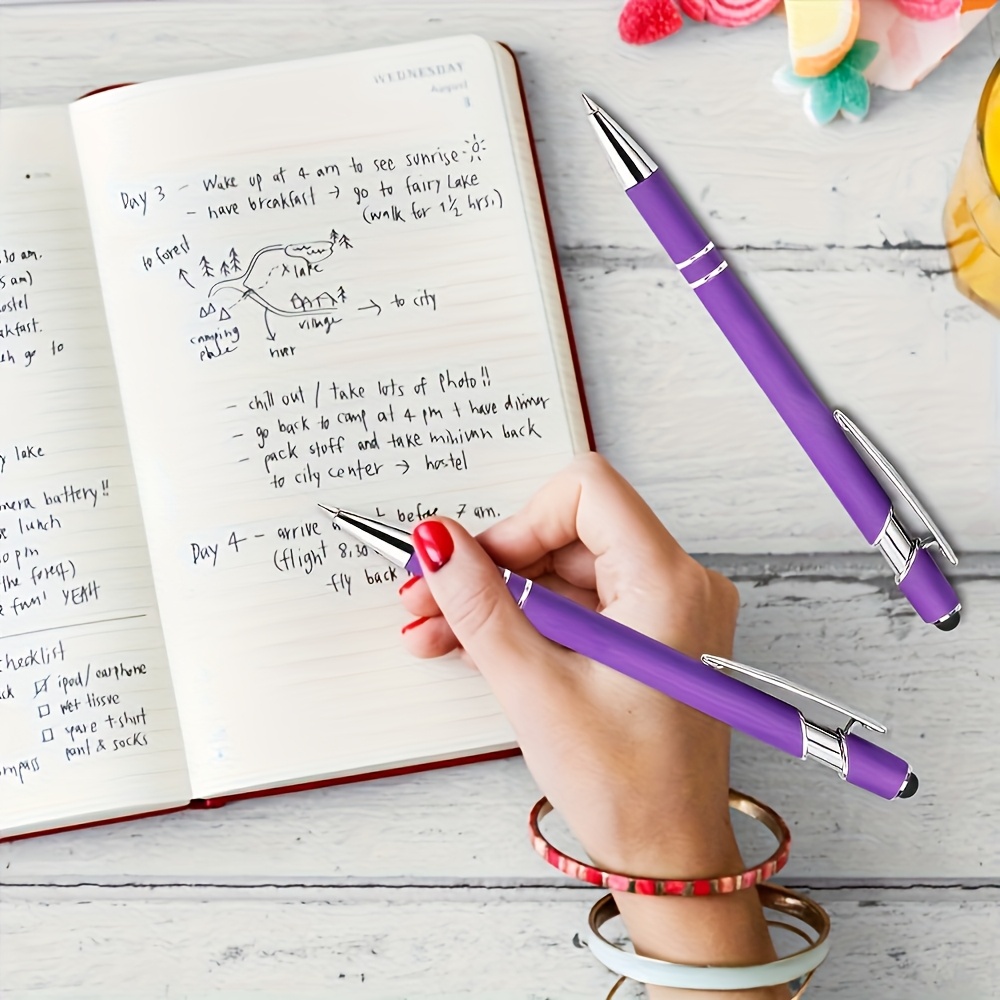 WEDNESDAY
August
3
Day 3 - Wake up at 4 am to see sunrise
- have breakfast → go to fairy Lake
(walk for 1½ hrs.)
to forest
x lake
→ to city
village
camping
place
river
- chill out / take lots of photo!!
- go back to camp at 4 pm + have dinner
- pack stuff and take minivan back
to city center → hostel
Day 4 - arrive before 7 am.
(flight 8:30
fly back
to am.
5 am)
ostel
akfast.
go to
y lake
mera battery!!
e lunch
0 pm
the forest)
e fun! YEAH
checklist
ck ipod/earphone
wet tissue
spare t-shirt
pant & socks
ompass